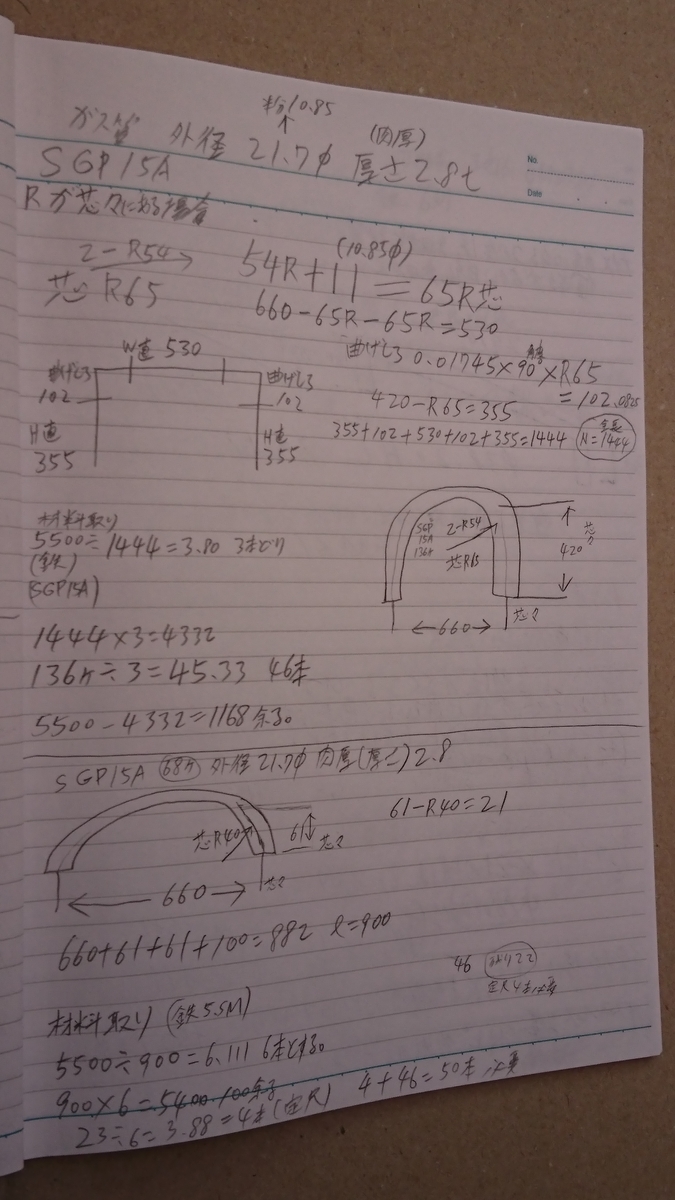 半分10.85
ガス管 外径 21.7φ (肉厚) 厚さ2.8t
SGP15A
No.
Date
Rが芯々にある場合
2-R54 54R+11(10.85φ)=65R芯
芯R65 660-65R-65R=530
曲げしろ 0.01745×90°(角度)×R65
=102.0825
W直 530
曲げしろ 102
曲げしろ 102
H直 355
H直 355
420-R65=355
355+102+530+102+355=1444 全長 N=1444
材料取り
5500÷1444=3.80 3本とり
(鉄)
(SGP15A)
SGP 15A 136ケ
2-R54
芯R65
420 芯々
660 芯々
1444×3=4332
136ケ÷3=45.33 46本
5500-4332=1168余る。
SGP15A 68ケ 外径21.7φ 肉厚(厚さ)2.8
芯R40
61 芯々
660 芯々
61-R40=21
660+61+61+100=882 l=900
46
定尺4本必要
材料取り (鉄5.5M)
5500÷900=6.111 6本とれる。
900×6=5400 100余る
23÷6=3.88=4本(定尺) 4+46=50本 必要